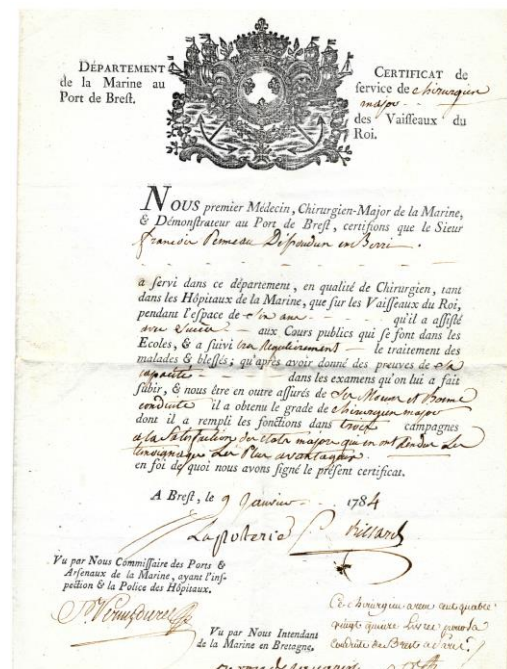 DÉPARTEMENT
de la Marine au
Port de Breſt.
CERTIFICAT de
ſervice de chirurgien
major
des Vaiſſeaux du
Roi.
NOUS premier Médecin, Chirurgien-Major de la Marine,
& Démonſtrateur au Port de Breſt, certifions que le Sieur
francois en Berri.
a ſervi dans ce département, en qualité de Chirurgien, tant
dans les Hôpitaux de la Marine, que ſur les Vaiſſeaux du Roi,
pendant l'eſpace de Six ans qu'il a aſſiſté
avec aux Cours publics qui ſe font dans les
Ecoles, & a ſuivi tres Regulierement le traitement des
malades & bleſſés; qu'après avoir donné des preuves de Sa
capacité dans les examens qu'on lui a fait
ſubir, & nous être en outre aſſurés de Ses Moeurs et Bonne
conduite il a obtenu le grade de chirurgien major
dont il a rempli les fonctions dans trois campagnes
a la Satisfaction des états major qui en ont Rendu Les
temoignage Les Plus avantageux.
en foi de quoi nous avons ſigné le préſent certificat.
A Breſt, le 9 Janvier 1784
Lapoterie Billard
Vu par Nous Commiſſaire des Ports &
Arſenaux de la Marine, ayant l'inſ-
pection & la Police des Hôpitaux.
Ce chirurgien a recu cent quatre
vingt quinze Livres pour la
conduite de Brest a
Vu par Nous Intendant
de la Marine en Bretagne,